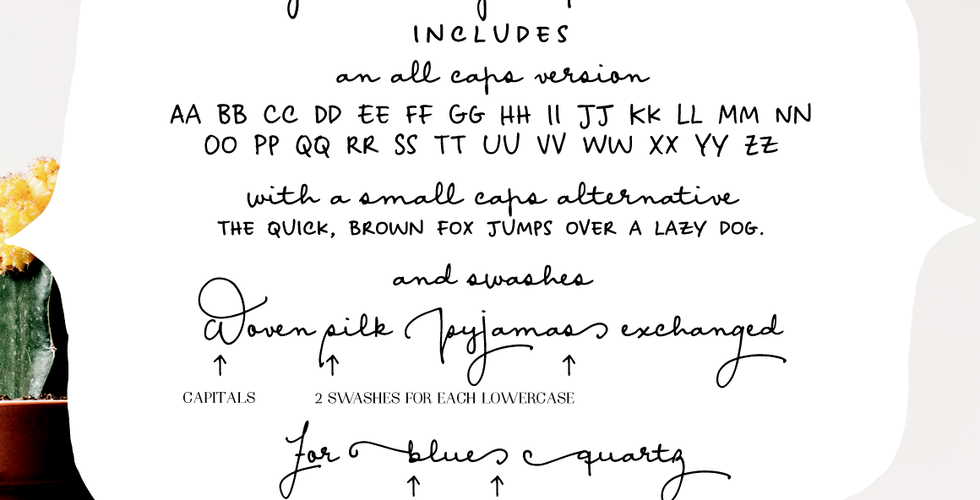 INCLUDES
an all caps version
AA BB CC DD EE FF GG HH II JJ KK LL MM NN
OO PP QQ RR SS TT UU VV WW XX YY ZZ
with a small caps alternative
THE QUICK, BROWN FOX JUMPS OVER A LAZY DOG.
and swashes
Woven silk pyjamas exchanged
CAPITALS 2 SWASHES FOR EACH LOWERCASE
for blue quartz